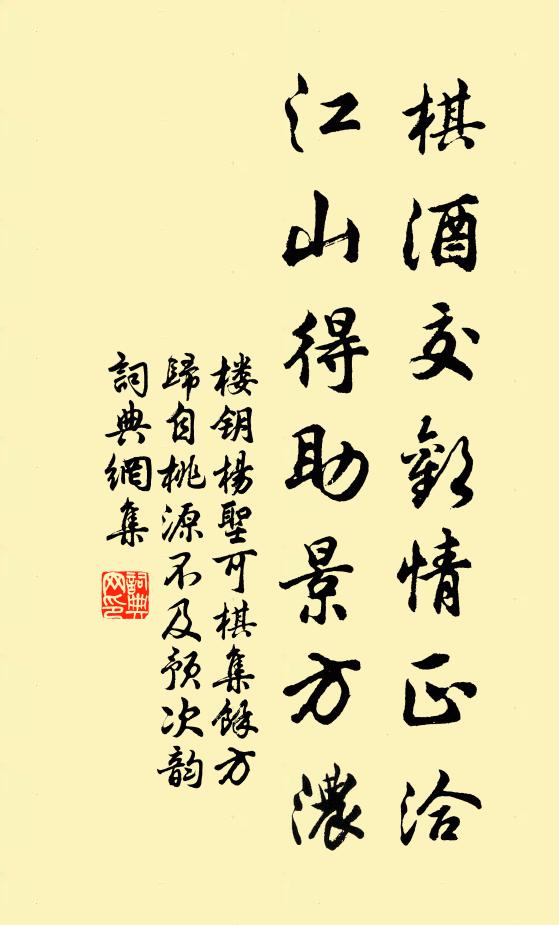 棋酒交歡情正洽
江山得助景方濃
楼钥楊聖可棋集餘方
歸自桃源不及預次韵
詞典網集
詞典网印